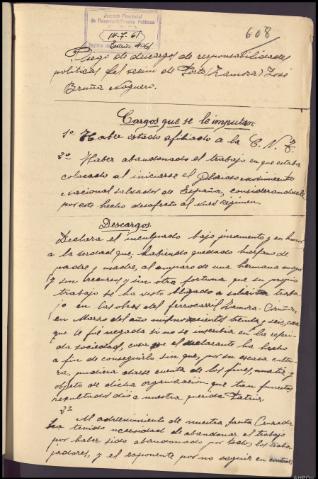 608
14-7-41
Pliego de descargos de responsabilidades
políticas del vecino de
José
Cargos que se le imputan
1º Haber estado afiliado a la C. N. T.
2º Haber abandonado el trabajo en que estaba
colocado al iniciarse el Glorioso movimiento
nacional salvador de España, considerandole
por este hecho desafecto al nuevo régimen.
Descargos
Declara el inculpado bajo juramento y en honor
a la verdad que, habiendo quedado huérfano de
padre y madre, al amparo de una hermana
y sin recursos y sin otra fortuna que su propio
trabajo se ha visto obligado a solicitar traba-
jo en las obras del ferrocarril Zamora-Coruña,
en Marzo del año mil novecientos treinta y seis, cosa
que le fué negada si no se inscribía en la refe-
rida sociedad, cosa que el declarante ha hecho
a fin de conseguirlo sin que, por su escasa cultu-
ra, pudiera darse cuenta de los fines, motivo y
objeto de dicha organización que tan funesto
resultado dió a nuestra querida Patria.
2º
Al advenimiento de nuestra Santa Cruzada
ha tenido necesidad de abandonar el trabajo
por haber sido abandonado por todos los traba-
jadores, y el exponente por no seguir en